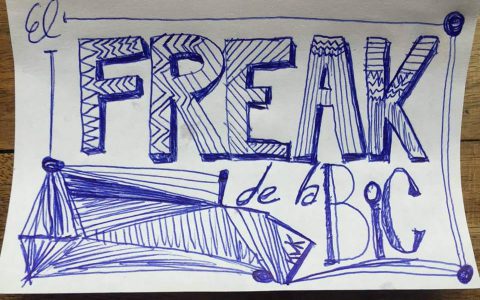 El
FREAK
de la BiC